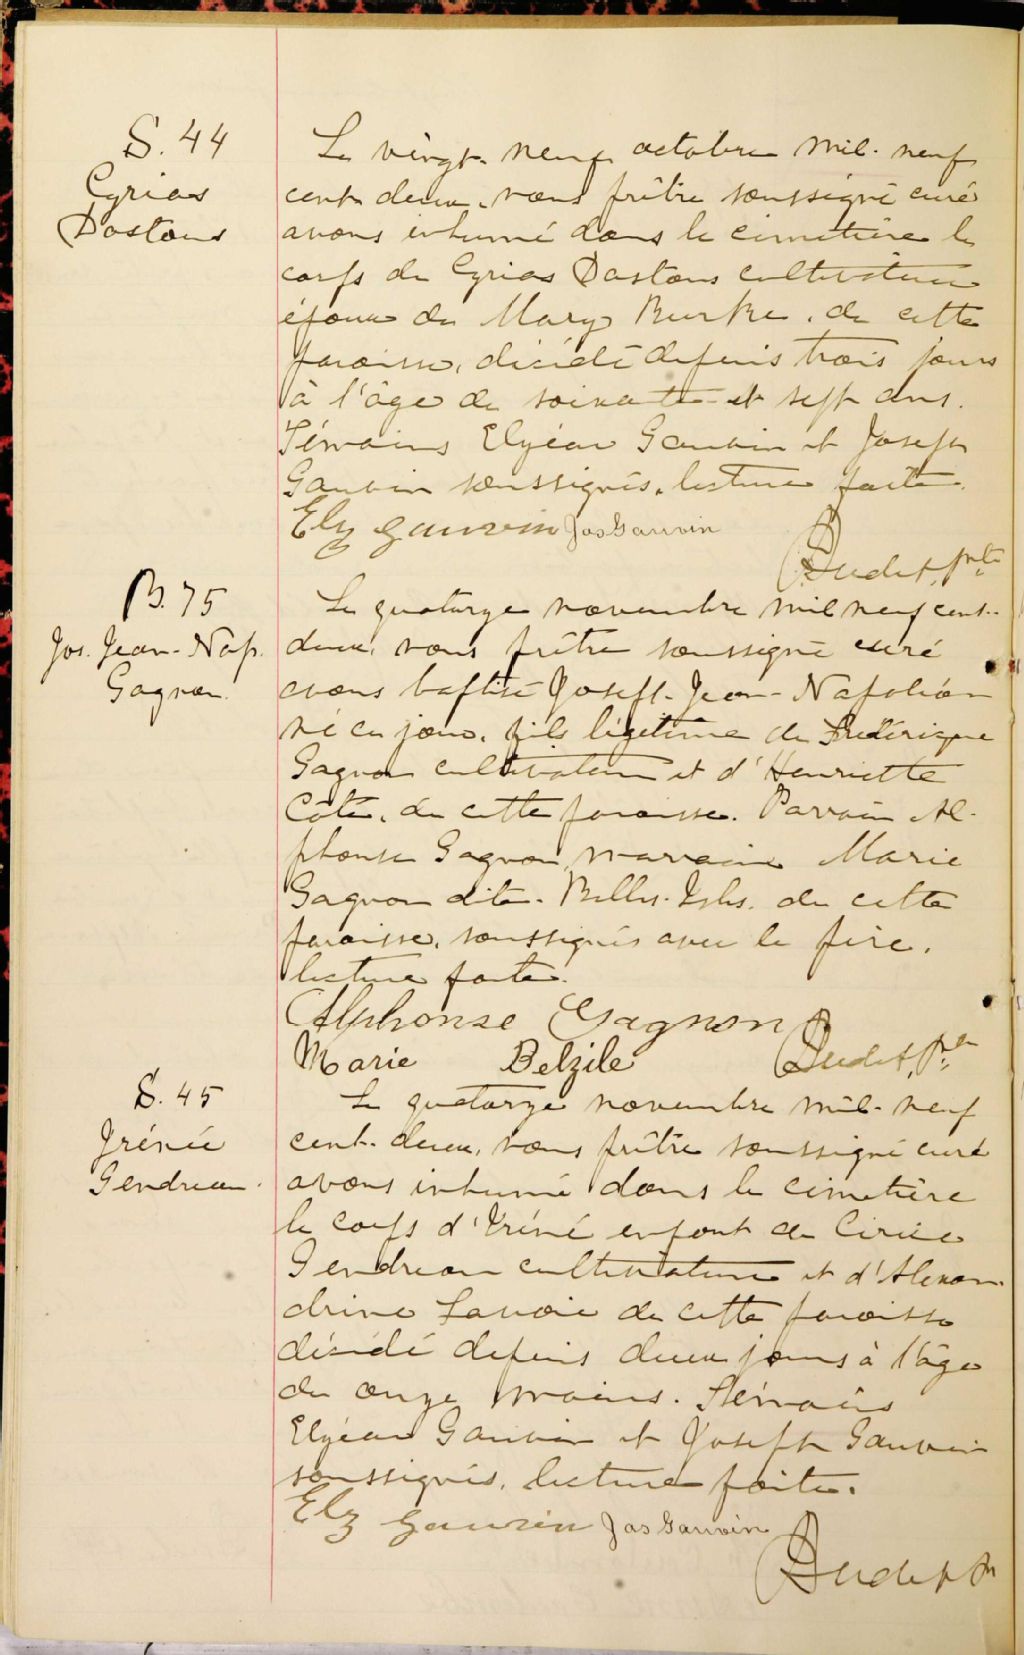 S. 44
Cyrias
Dastous
Le vingt-neuf octobre mil-neuf
cent deux, nous prêtre soussigné curé
avons inhumé dans le cimetière le
corps de Cyrias Dastous cultivateur
époux de Mary Burke, de cette
paroisse, décédé depuis trois jours
à l'âge de soixante et sept ans.
Témoins Elzéar Gauvin et Joseph
Gauvin soussignés, lecture faite.
Elz Gauvin Jos Gauvin
Ptre
B. 75
Jos. Jean-Nap.
Gagnon
Le quatorze novembre mil neuf cent-
deux, nous prêtre soussigné curé
avons baptisé Joseph-Jean-Napoléon
né ce jour, fils légitime de Frédérique
Gagnon cultivateur et d'Henriette
Côté, de cette paroisse. Parrain Al-
phonse Gagnon, marraine Marie
Gagnon dite Belles-Isles, de cette
paroisse, soussignés avec le père,
lecture faite.
Alphonse Gagnon
Marie Belzile Ptre
S. 45
Irénée
Gendreau.
Le quatorze novembre mil-neuf
cent-deux, nous prêtre soussigné curé
avons inhumé dans le cimetière
le corps d'Iréné enfant de
Gendreau cultivateur et d'Alexan-
drine Lavoie de cette paroisse
décédé depuis deux jours à l'âge
de onze mois. Témoins
Elzéar Gauvin et Joseph Gauvin
soussignés, lecture faite.
Elz Gauvin Jos Gauvin